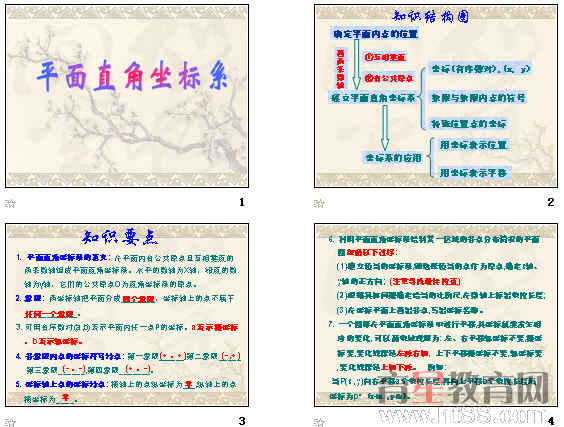 平面直角坐标系
1
知识结构图
确定平面内点的位置
画两条数轴
①互相垂直
②有公共原点
建立平面直角坐标系
坐标(有序数对),(x, y)
象限与象限内点的符号
特殊位置点的坐标
坐标系的应用
用坐标表示位置
用坐标表示平移
2
知识要点
1. 平面直角坐标系的意义:在平面内有公共原点且互相垂直的
两条数轴组成平面直角坐标系。水平的数轴为X轴,铅直的数
轴为y轴,它们的公共原点O为直角坐标系的原点。
2. 象限:两坐标轴把平面分成 四个象限,坐标轴上的点不属于
任何一个象限。
3. 可用有序数对(a,b)表示平面内任一点P的坐标。a表示横坐标
,b表示纵坐标。
4. 各象限内点的坐标符号特点:第一象限(+,+)第二象限(-,+)
第三象限(-,-)第四象限(+,-)。
5. 坐标轴上点的坐标特点:横轴上的点纵坐标为 零,纵轴上的点
横坐标为 零。
3
6. 利用平面直角坐标系绘制某一区域的各点分布情况的平面
图包括以下过程:
(1)建立适当的坐标系,即选择适当的点作为原点,确定x轴、
y轴的正方向;(注重寻找最佳位置)
(2)根据具体问题确定恰当的比例尺,在数轴上标出单位长度;
(3)在坐标平面上画出各点,写出坐标名称。
7. 一个图形在平面直角坐标系中进行平移,其坐标就要发生相
应的变化,可以简单地理解为:左、右平移纵坐标不变,横坐
标变,变化规律是左减右加,上下平移横坐标不变,纵坐标变
,变化规律是上加下减。例如:
4
育星教育网
www.ht88.com